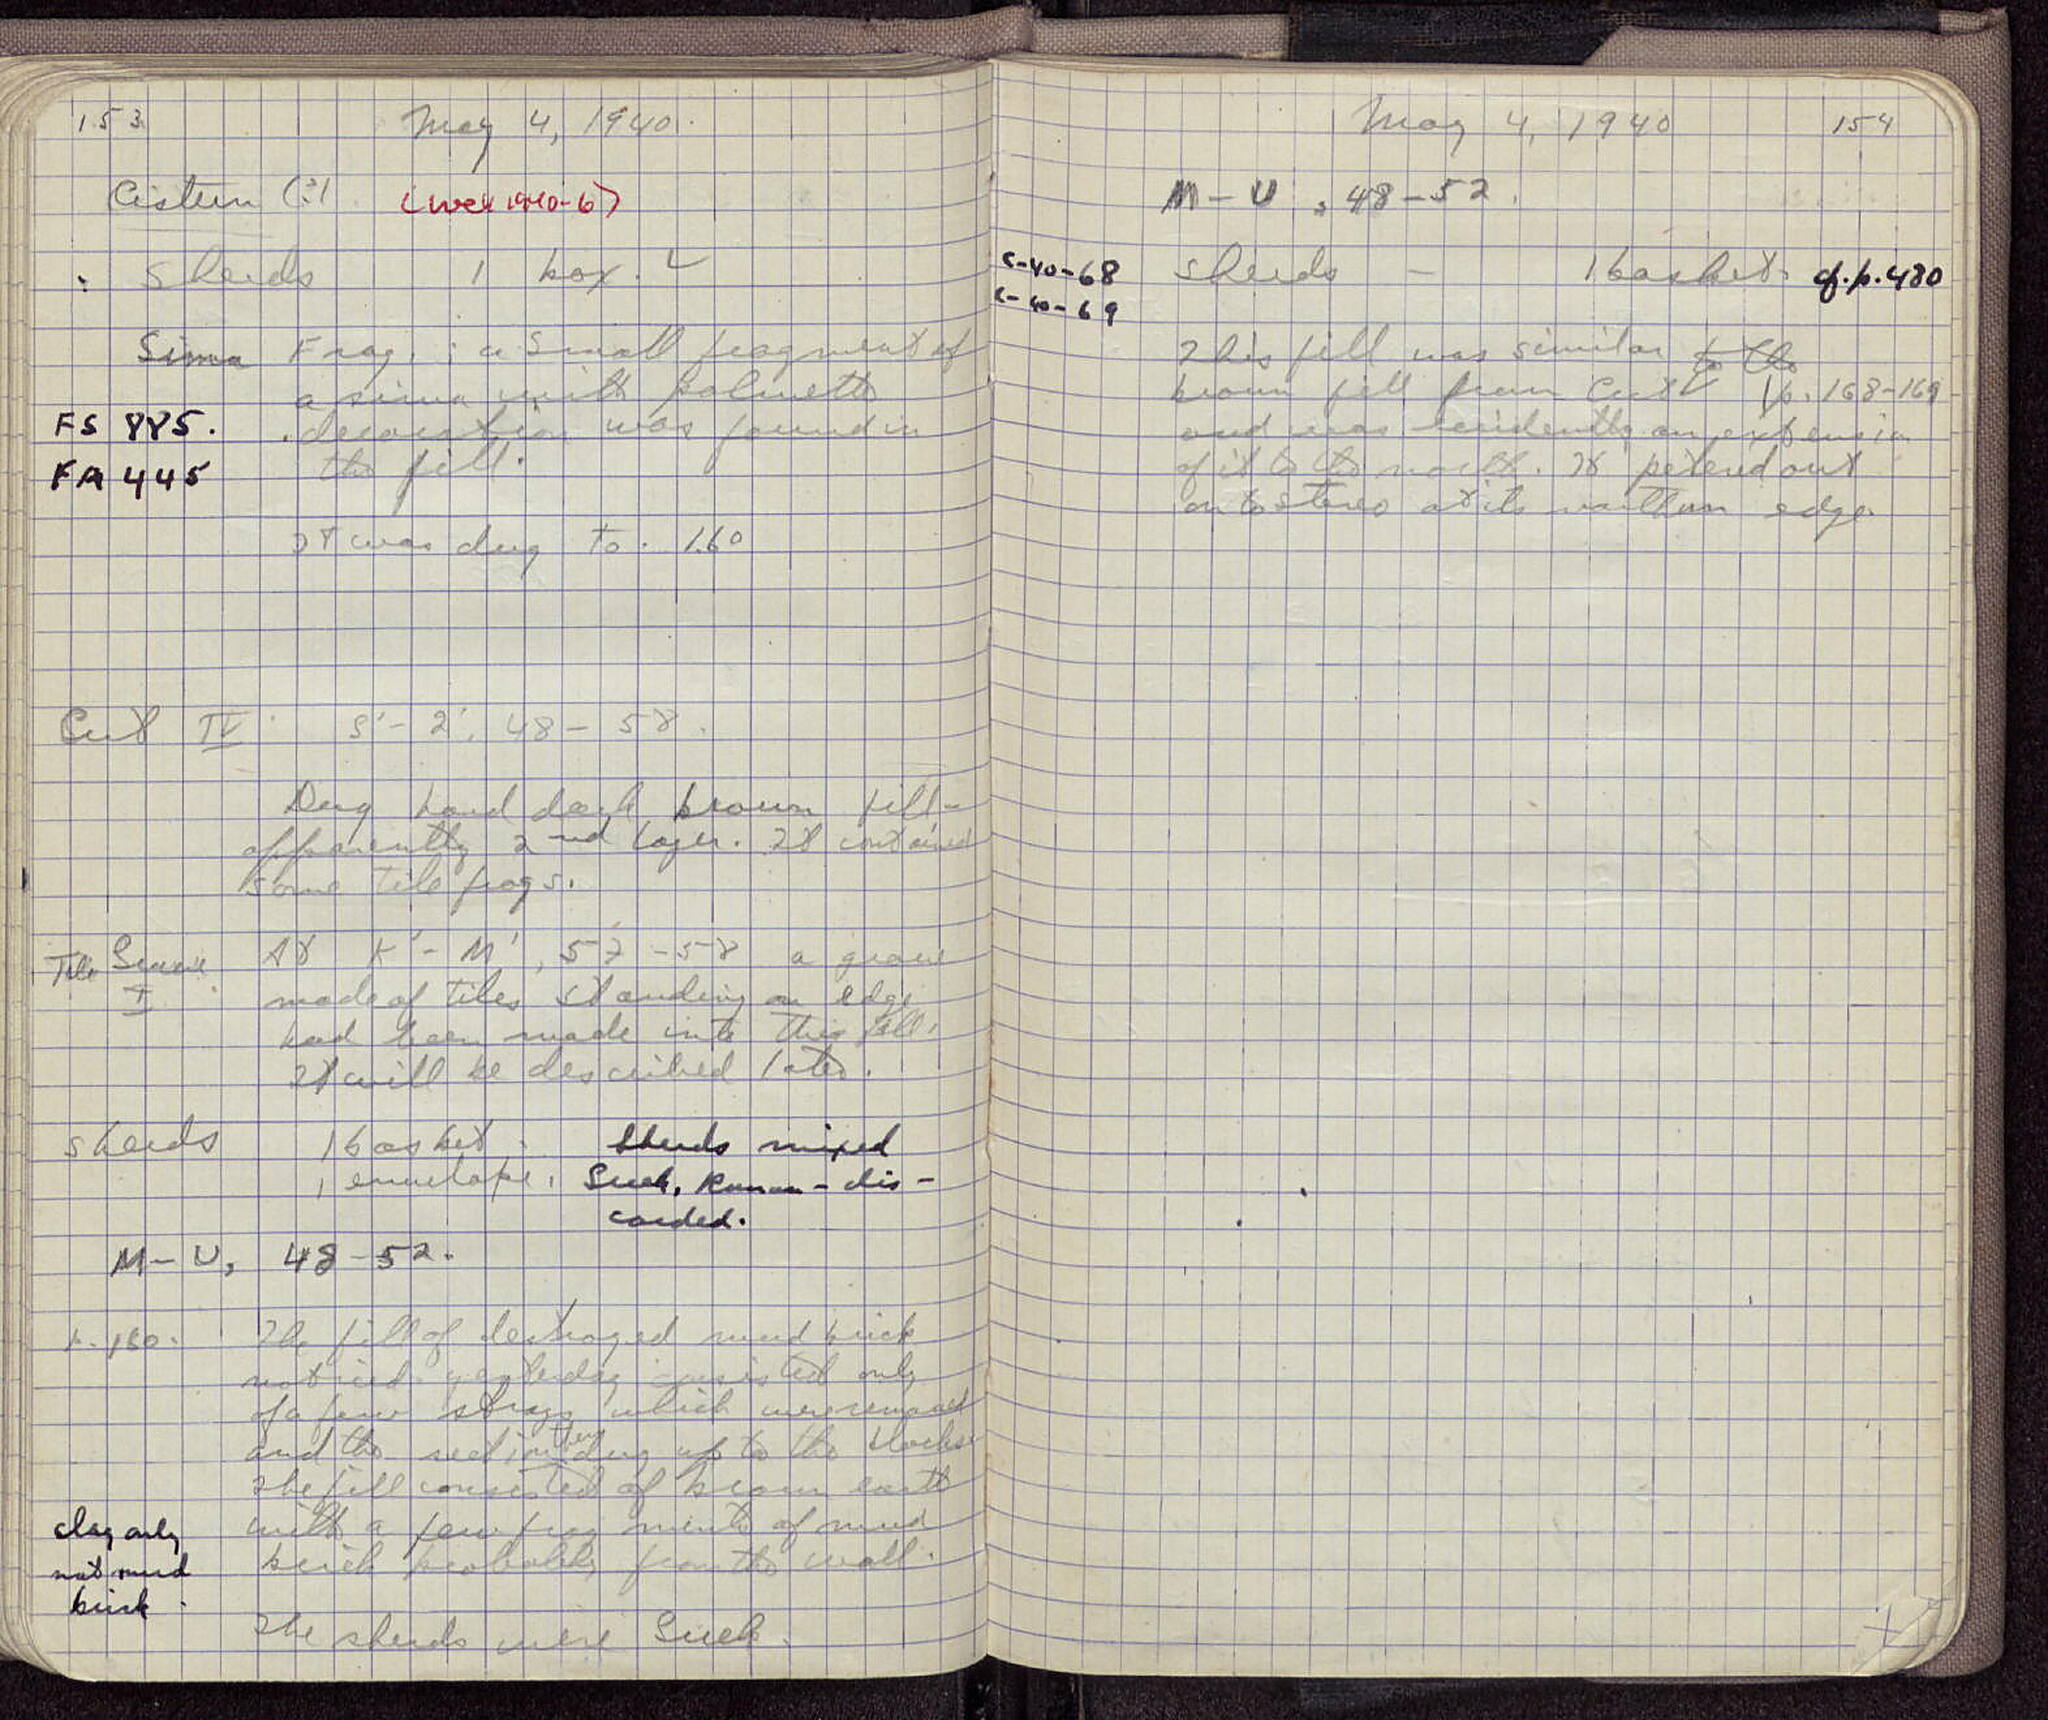 153
May 4, 1940.
Cistern (?)
(well 1940-6)
Sherds 1 box.
Sima Frag. : a small fragment of
a sima with palmette
decoration was found in
the fill.
FS 885.
FA 445
It was dug to 1.60
Cut IV S'-2', 48-58.
Dug hard dark brown fill-
apparently 2nd layer. It contained
some tile frags.
Tile Grave
I
At K'-M', 57-58 a grave
made of tiles standing on edge
had been made into this fill.
It will be described later.
sherds 1 basket.
1 envelope.
Sherds mixed
Greek, Roman - dis-
carded.
M-U, 48-52.
p. 150. The fill of destroyed mud brick
noticed yesterday consisted only
of a few strays which were removed
and the section then dug up to the blocks.
The fill consisted of brown earth
with a few fragments of mud
brick probably from the wall.
clay only
not mud
brick.
The sherds were Greek.
May 4, 1940 154
M-U, 48-52.
C-40-68
C-40-69
sherds - 1 basket. cf. p. 480
This fill was similar to the
brown fill from Cut V p. 168-169
and was evidently an extension
of it to the north. It petered out
onto stereo at its northern edge.